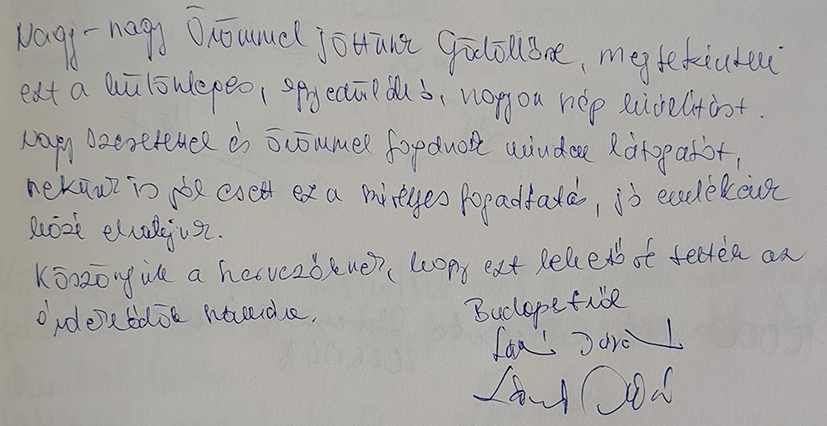 Nagy-nagy Örömmel jöttünk Gödöllőre, megtekinteni
ezt a különleges, egyedülálló, nagyon szép kiállítást.
Nagy szeretettel és örömmel fogadnak minden látogatót,
nekünk is jól esett ez a szívélyes fogadtatás, jó emlékeink
közé elrakjuk.
Köszönjük a szervezőknek, hogy ezt lehetővé tették az
érdeklődők számára.
Budapestről